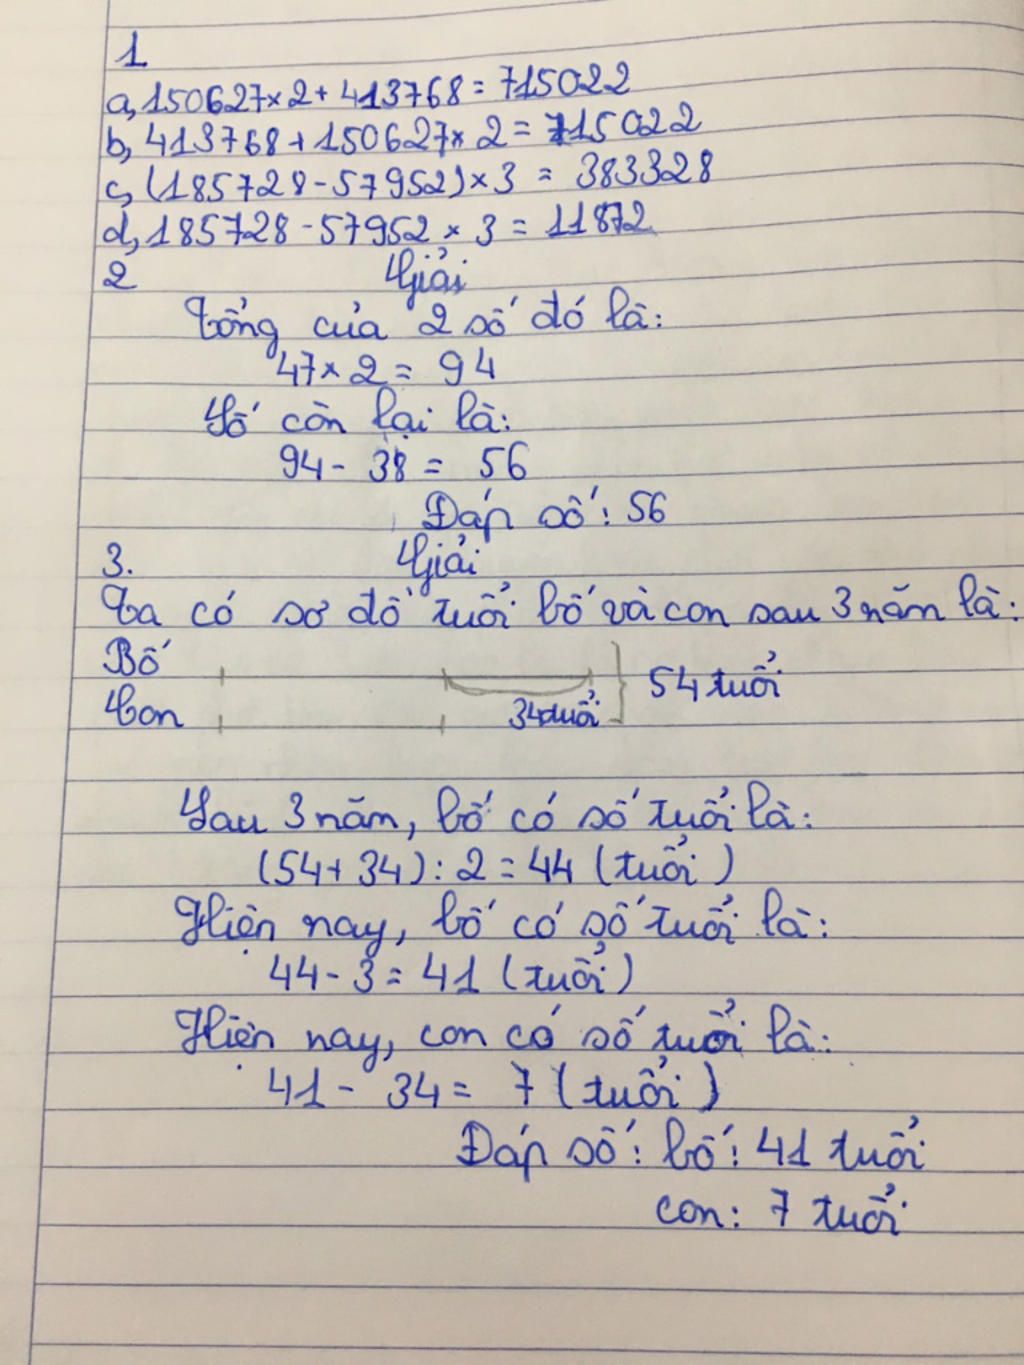 1
a, 150627×2+ 413768 = 715022
b, 413768 + 150627× 2 = 715022
c, (185728-57952)×3 = 383328
d, 185728-57952 × 3 = 11872
2 Giải
Tổng của 2 số đó là:
47× 2 = 94
Số còn lại là:
94 - 38 = 56
Đáp số: 56
3. Giải
Ta có sơ đồ tuổi bố và con sau 3 năm là:
Bố
54 tuổi
Con
34 tuổi
Sau 3 năm, bố có số tuổi là:
(54+ 34) : 2 = 44 (tuổi)
Hiện nay, bố có số tuổi là:
44 - 3 = 41 (tuổi)
Hiện nay, con có số tuổi là:
41 - 34 = 7 (tuổi)
Đáp số: bố: 41 tuổi
con: 7 tuổi